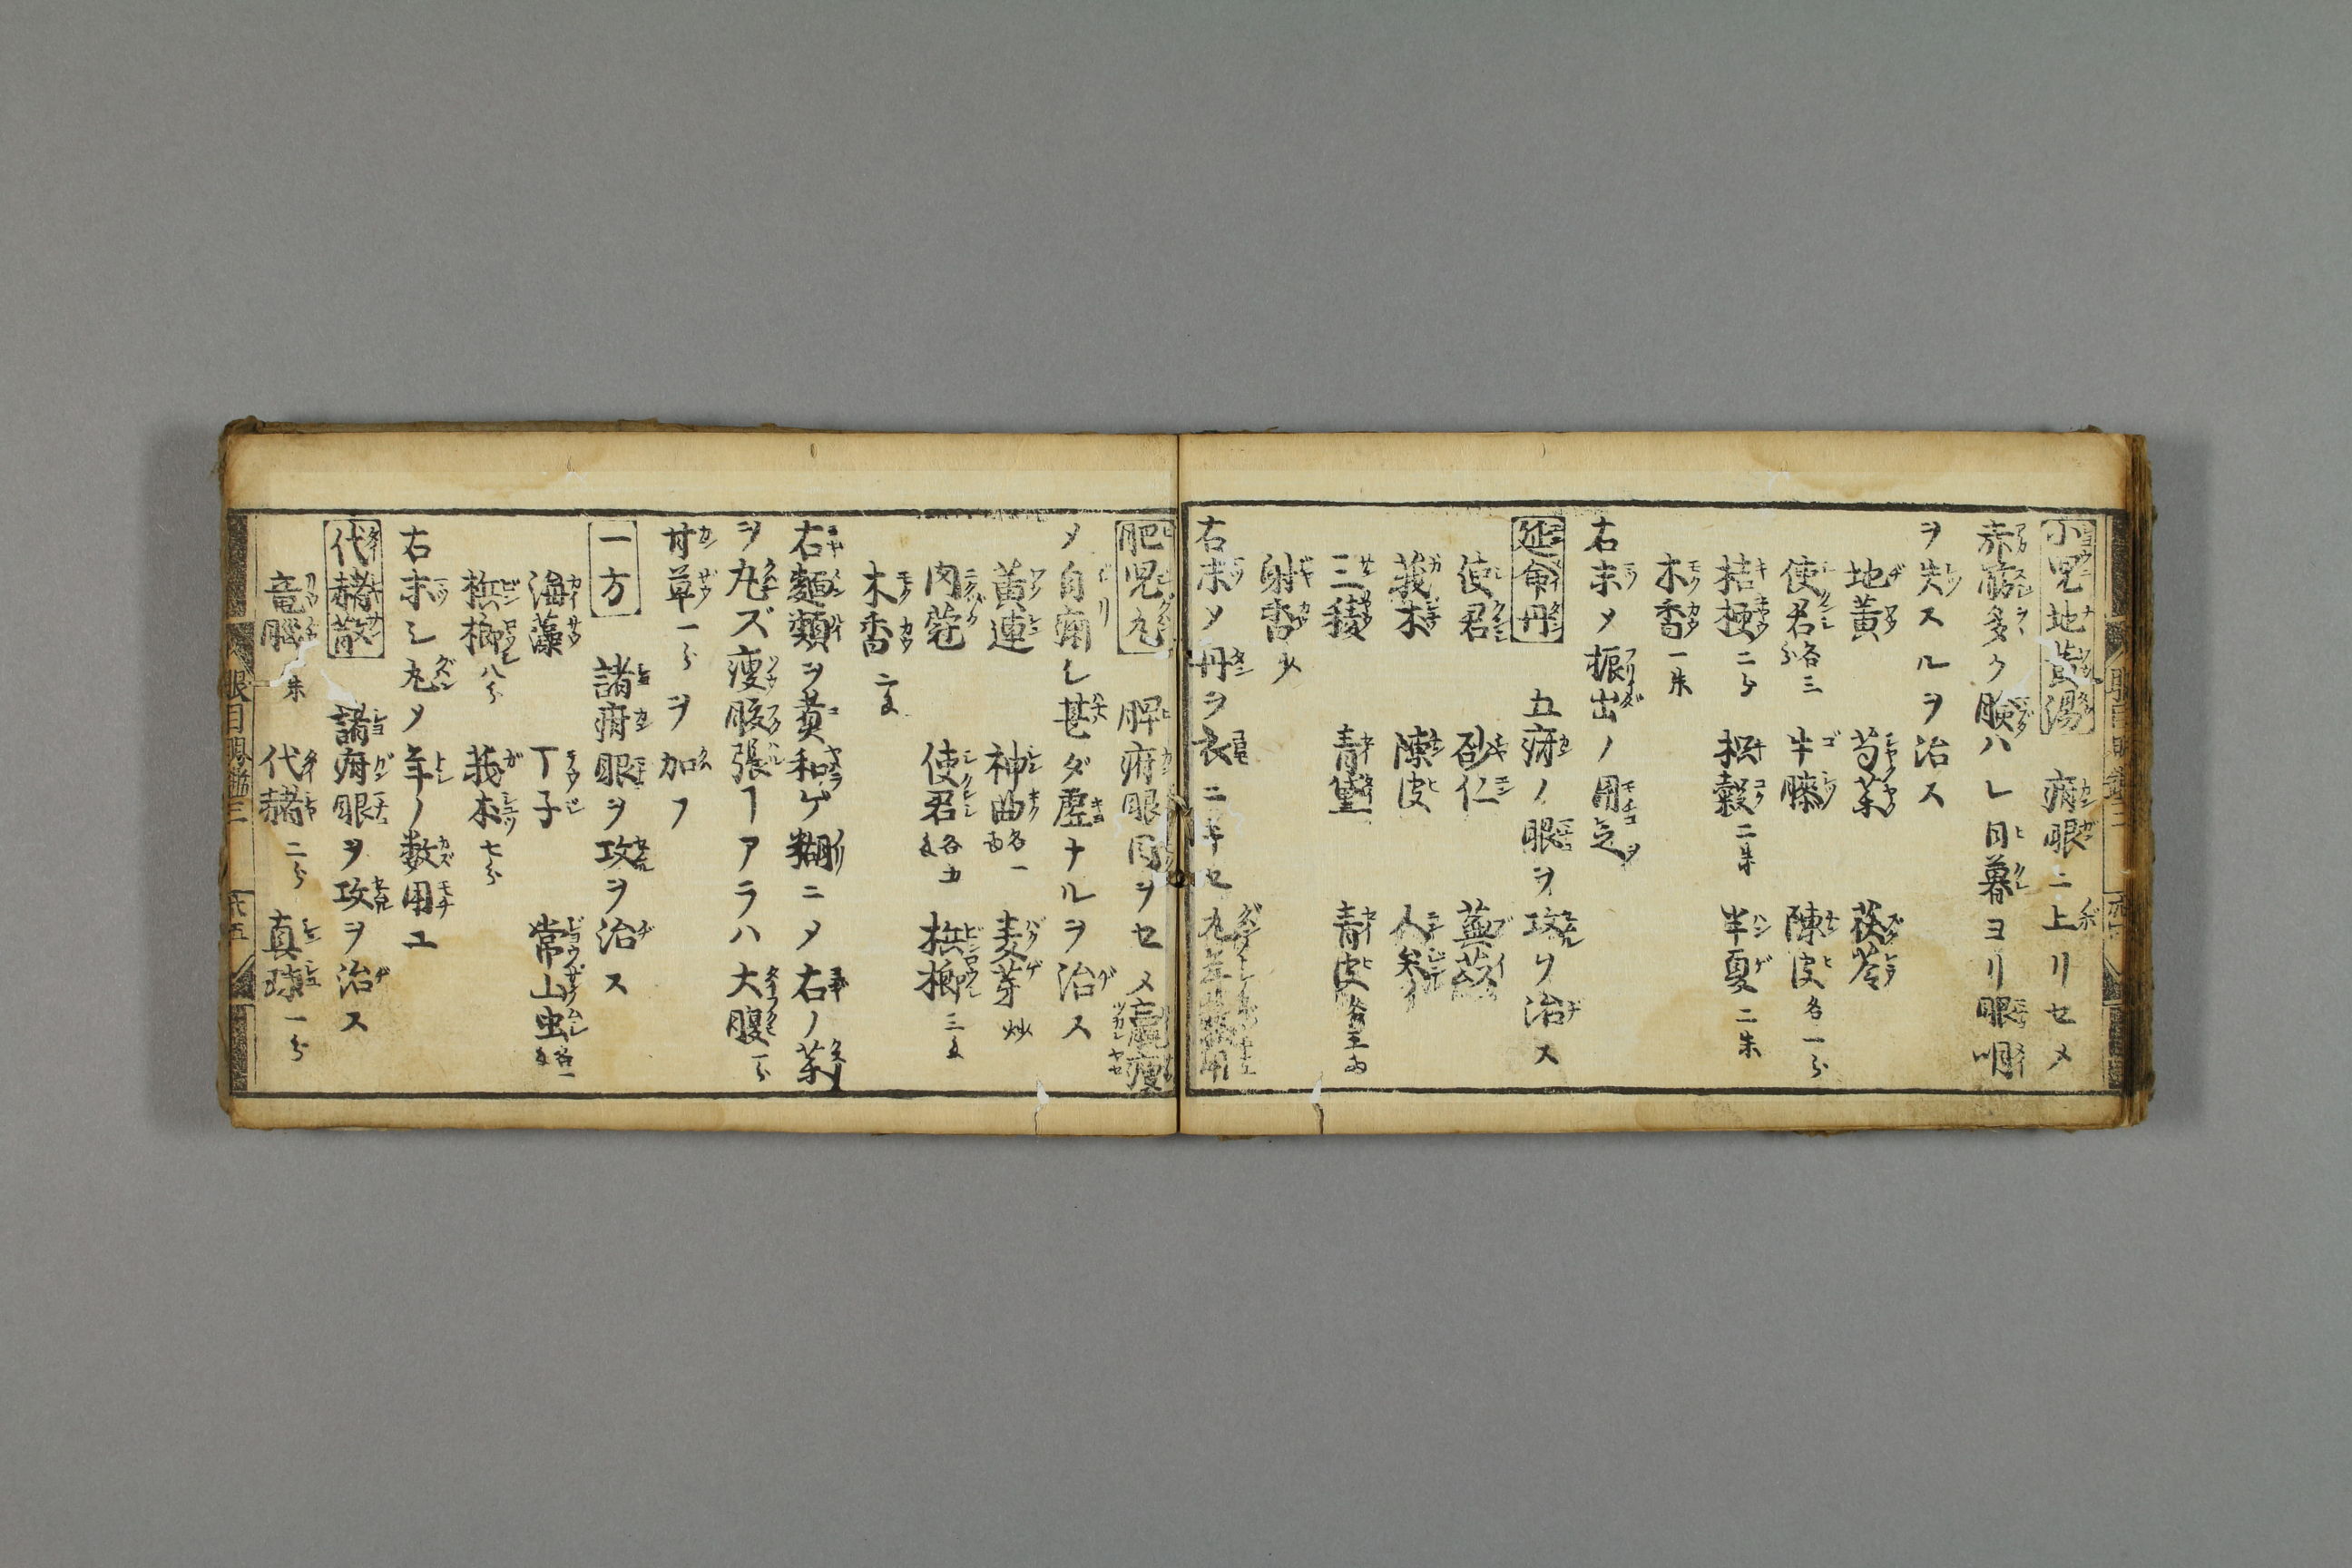 小児地黄湯 疳眼ニ上リセメ
赤筋多ク瞼ハレ日暮ヨリ眼明
ヲ失スルヲ治ス
地黄 芍薬 茯苓
使君各三分 牛膝 陳皮各一分
桔梗二分 枳穀二朱 半夏二朱
木香一朱
右末メ振出ノ用乞
延命丹 五疳ノ眼ヲ攻ソ治ス
使君 砂仁 蕪荑
莪木 陳皮 人参
三稜 青黛 青皮
射香少
右末メ丹ヲ衣ニ
肥児丸 脾疳眼目ヲセメ羸瘦
メ自痢シ甚ダ虚ナルヲ治ス
黄連 神曲各一 麦芽炒
肉蔲 使君各五 梹榔三
木香二
右麺類ヲ煑和ゲ糊ニメ右ノ薬
ヲ丸ズ瘦腹張ヿアラハ大腹一分
甘草一分ヲ加フ
一方 諸疳眼ヲ攻ヲ治ス
海藻 丁子 常山虫各一
梹榔八分 莪木七分
右末シ丸メ年ノ数用ユ
代赭散 諸疳眼ヲ攻ヲ治ス
竜脳 朱 代赭二分 真珠一分
眼目明鑑三